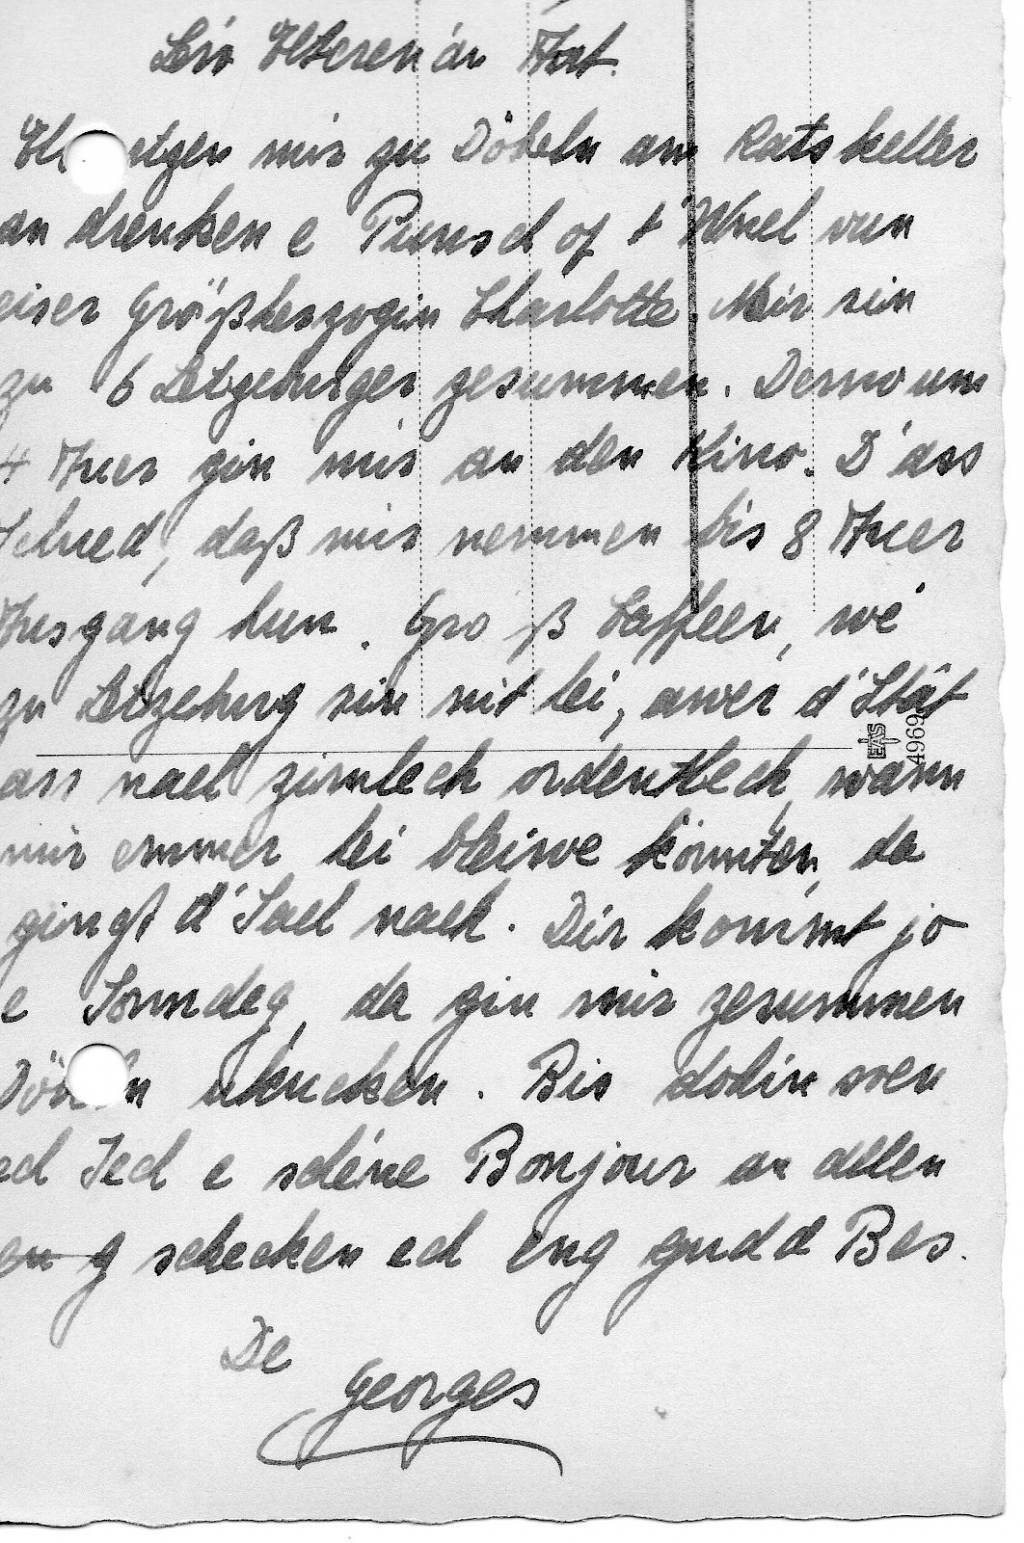 Léiw Elteren an Nat.
zu Döbeln am Ratskeller
an drenken e Punsch op d'Wuel vun
eiser Größherzogin Charlotte. Mir sin
zu 6 Letzeburger zesummen. Derno um
4 Auer gin mir an den Kino. D'ass
Schued, daß mir nemmen bis 8 Auer
Ausgang hun. Gro ß Caffeen, wé
zu Letzeburg sin nit hei, awer d'Stât
ass nach zimlech ordentlech, wann
mir emmer hei bleiwe kömnten, da
gingt d'Sach nach. Dir kommt jo
e Sonndeg, da gin mir zesummen
Döbeln ukucken. Bis dohin soen
ech Iech e schéine Bonjour an allen
schecken ech eng gudd Bes.
De
Georges
EAS
4969